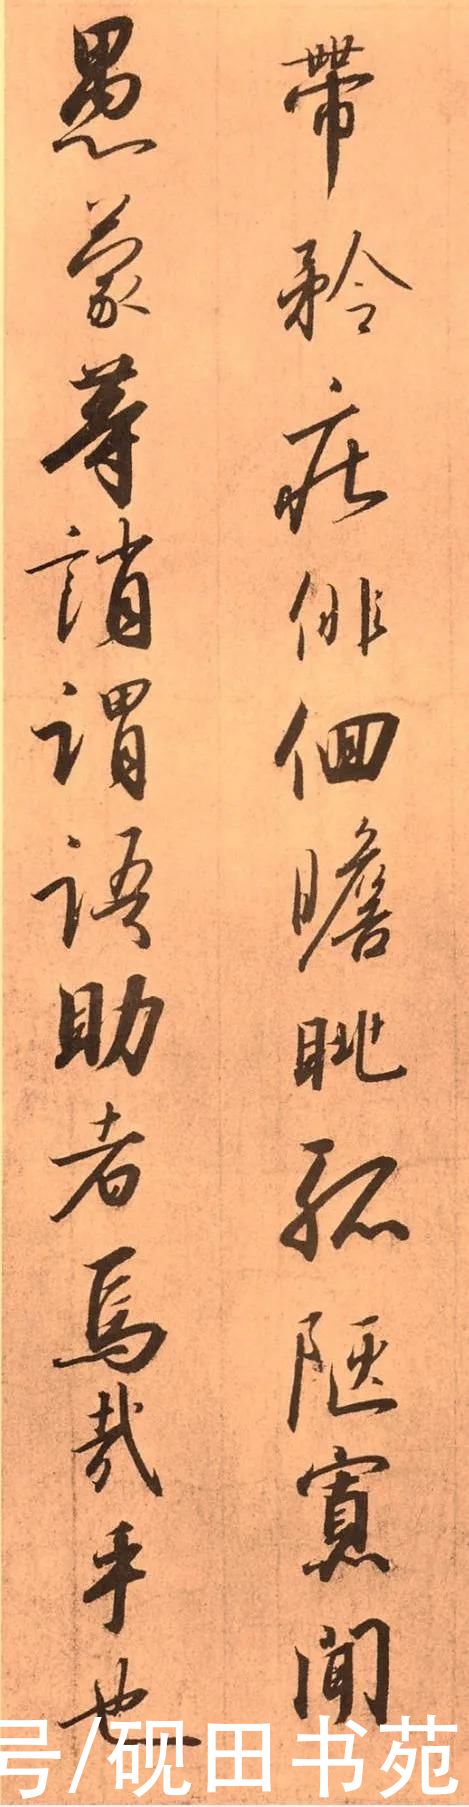 帶矜莊俳佪瞻眺孤陋寡聞
愚蒙等誚謂語助者焉哉乎也
号/砚田书苑